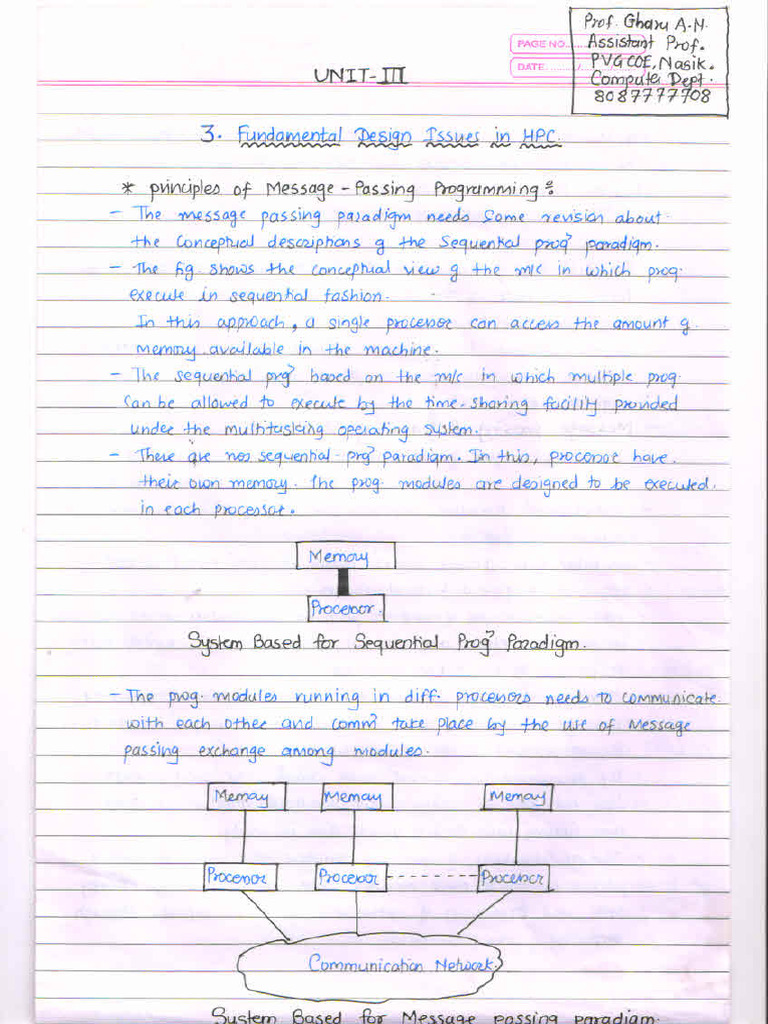 Prof. Gharu A.N.
Assistant Prof.
PVGCOE, Nasik.
Computer Dept.
8087777708
PAGE NO.
DATE
UNIT-III
3. Fundamental Design Issues in HPC.
* Principles of Message-Passing Programming :
- The message passing paradigm needs some revision about
the conceptual descriptions of the sequential progⁿ paradigm.
- The fig. shows the conceptual view of the m/c in which prog.
execute in sequential fashion.
In this approach, a single processor can access the amount of
memory available in the machine.
- The sequential prgⁿ based on the m/c in which multiple prog.
can be allowed to execute by the time-sharing facility provided
under the multitasking operating system.
- There are nos sequential-prgⁿ paradigm. In this, processor have
their own memory. The prog. modules are designed to be executed
in each processor.
Memory
Processor.
System Based for Sequential Progⁿ Paradigm.
- The prog. modules running in diff. processors needs to communicate
with each other and commⁿ take place by the use of Message
passing exchange among modules.
Memory Memory Memory
Processor Processor Processor
Communication Network.
System Based for Message passing paradigm.